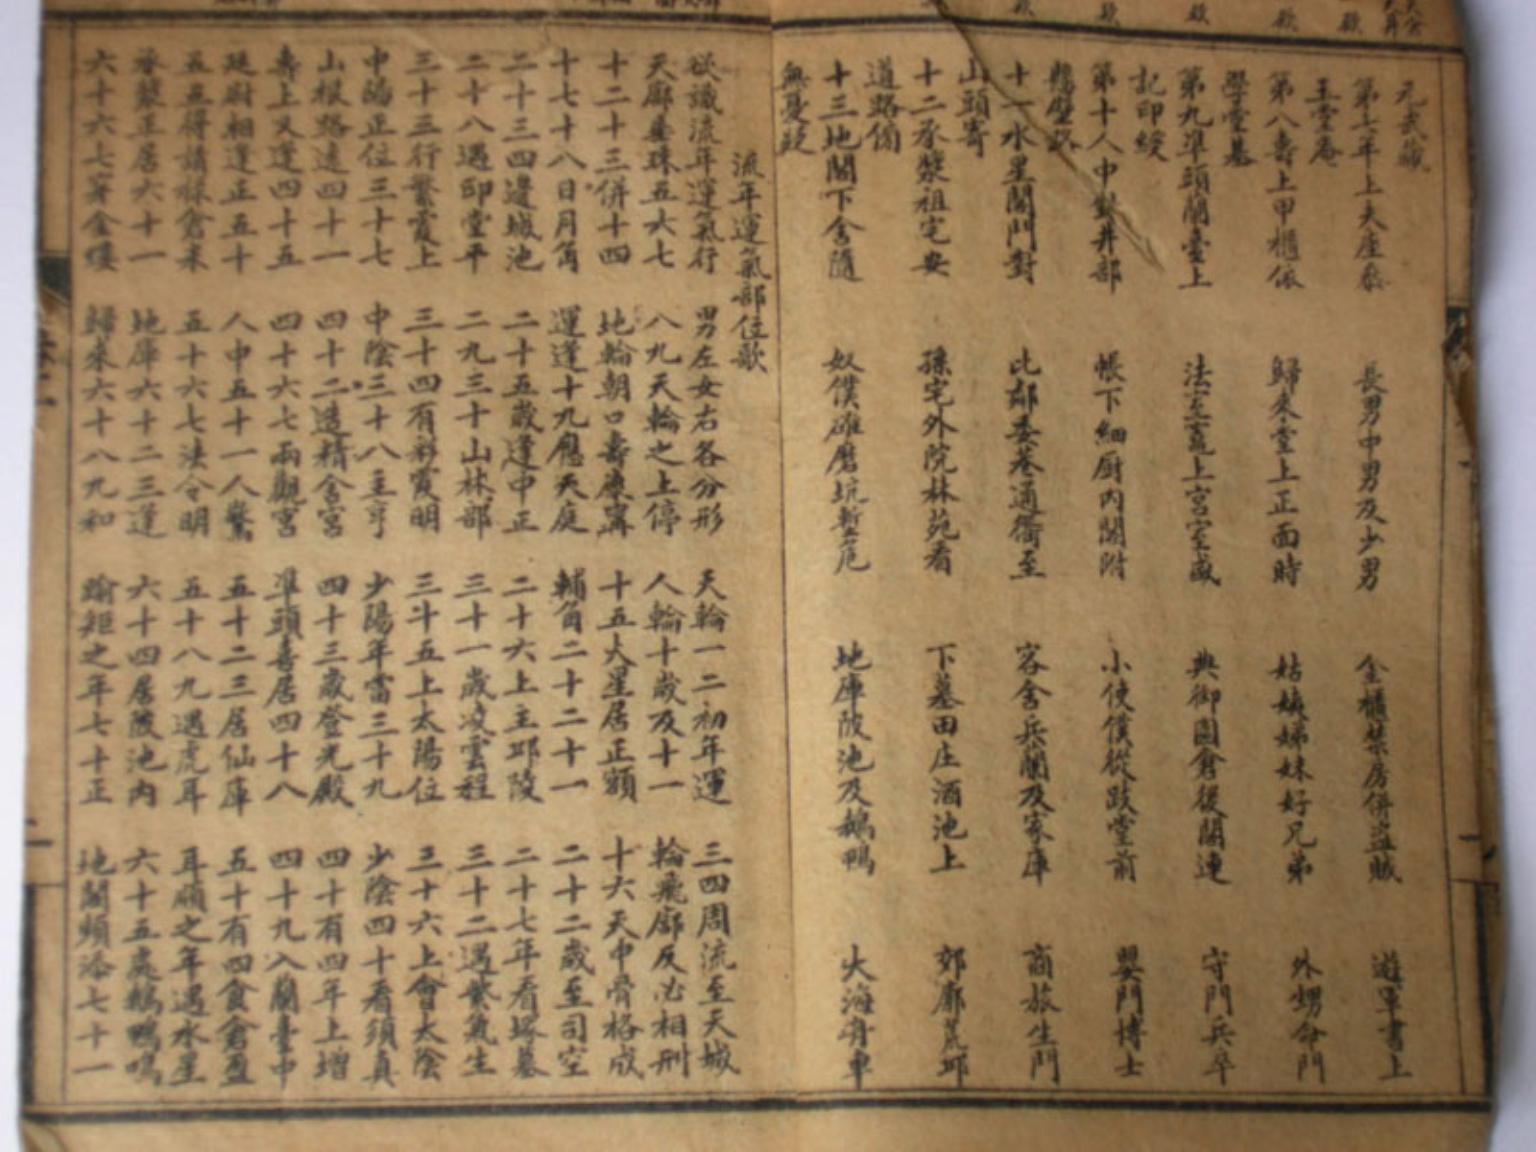 元武藏
第七年上大座參 長男中男及少男 金櫃禁房併盜賊 遊軍書上
玉堂庵
第八壽上甲櫃依 歸來堂上正面時 姑姨姊妹好兄弟 外甥命門
學堂基
第九準頭蘭臺上 法令竈上宮室盛 典御園倉後閣連 守門兵卒
記印綬
第十人中對井部 帳下細厨內閣附 小使僕從跂堂前 嬰門博士
懸壁路
十一水星閣門對 比鄰委巷通衢至 客舍兵蘭及家庫 商旅生門
山頭寄
十二承漿祖宅安 孫宅外院林苑看 下墓田庄酒池上 郊廓荒邱
道路傍
十三地閣下舍隨 奴僕碓磨坑塹危 地庫陂池及鵝鴨 大海舟車
無憂疑
流年運氣部位歌
欲識流年運氣行 男左女右各分形 天輪一二初年運 三四周流至天城
天廓垂珠五六七 八九天輪之上停 人輪十歲及十一 輪飛廓反必相刑
十二十三併十四 地輪朝口壽康寧 十五火星居正額 十六天中骨格成
十七十八日月角 運逢十九應天庭 輔角二十二十一 二十二歲至司空
二十三四邊城池 二十五歲逢中正 二十六上主邱陵 二十七年看塚墓
二十八遇印堂平 二九三十山林部 三十一歲凌雲程 三十二遇紫氣生
三十三行繁霞上 三十四有彩霞明 三十五上太陽位 三十六上會太陰
中陽正位三十七 中陰三十八主亨 少陽年當三十九 少陰四十看須真
山根路遠四十一 四十二造精舍宮 四十三歲登光殿 四十有四年上增
壽上又逢四十五 四十六七兩觀宮 準頭喜居四十八 四十九入蘭臺中
廷尉相逢正五十 人中五十一人驚 五十二三居仙庫 五十有四食倉盈
五五得請祿倉米 五十六七法令明 五十八九遇虎耳 耳順之年遇水星
承漿正居六十一 地庫六十二三逢 六十四居陂池內 六十五處鵝鴨鳴
六十六七穿金縷 歸來六十八九和 踰矩之年七十正 地閣頻添七十一